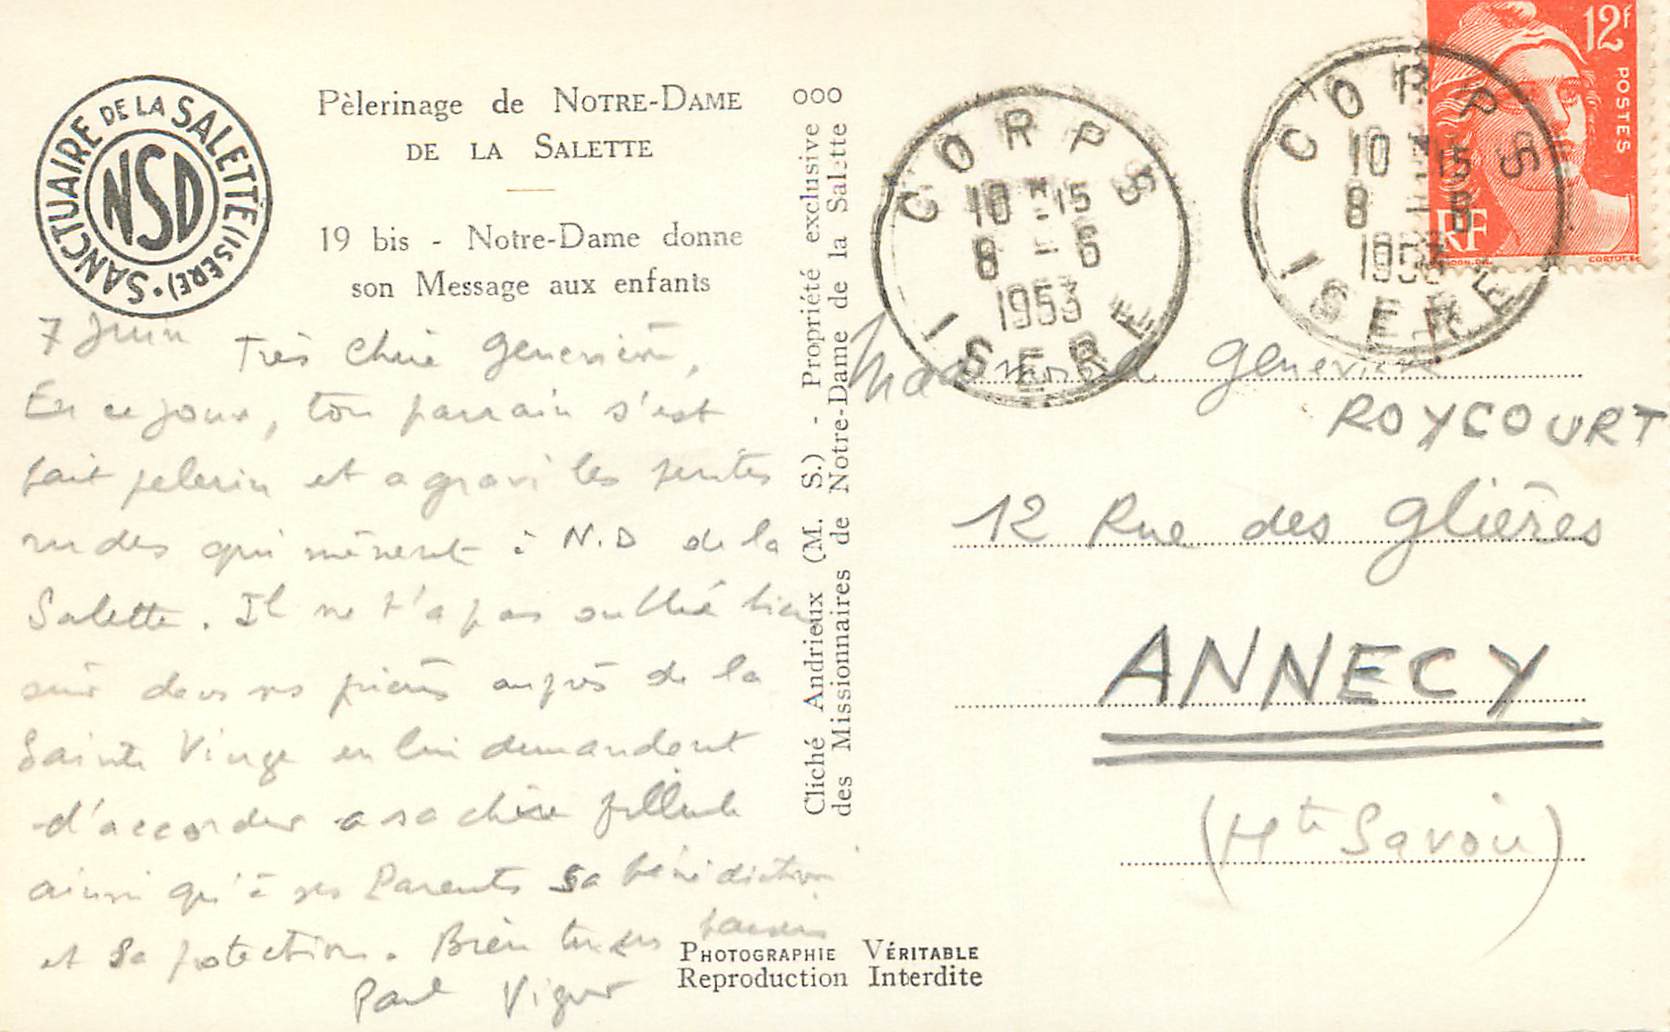 SANCTUAIRE DE LA SALETTE (ISÈRE).
NSD
Pèlerinage de NOTRE-DAME
DE LA SALETTE
19 bis - Notre-Dame donne
son Message aux enfants
7 Juin
Très chère Geneviève,
En ce jour, ton parrain s'est
fait pelerin et a gravi les pentes
rudes qui mènent à N.D de la
Salette. Il ne t'a pas oublié bien
sûr dans ses prières auprès de la
Sainte Vierge en lui demandant
d'accorder a sa chère filleule
ainsi qu'à ses Parents sa bénédiction
et sa protection. Bien tendres baisers
Paul
ooo
Cliché Andrieux (M. S.) - Propriété exclusive
des Missionnaires de Notre-Dame de la Salette
PHOTOGRAPHIE VÉRITABLE
Reproduction Interdite
CORPS
10 H 15
8 - 6
1953
ISERE
CORPS
10 H 15
8 - 6
1953
ISERE
12f
POSTES
RF
Geneviève
ROYCOURT
12 Rue des Glières
ANNECY
(Hte Savoie)